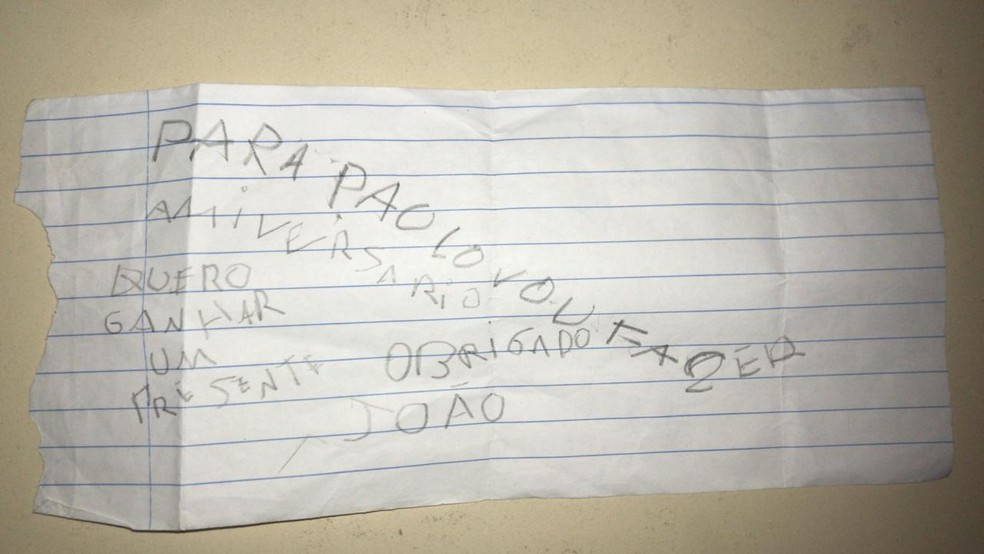 PARA PAOLO VOU FAZER
AMIVERSARIO
QUERO
GANHAR
UM
PRESENTE
OBRIGADO
JOÃO